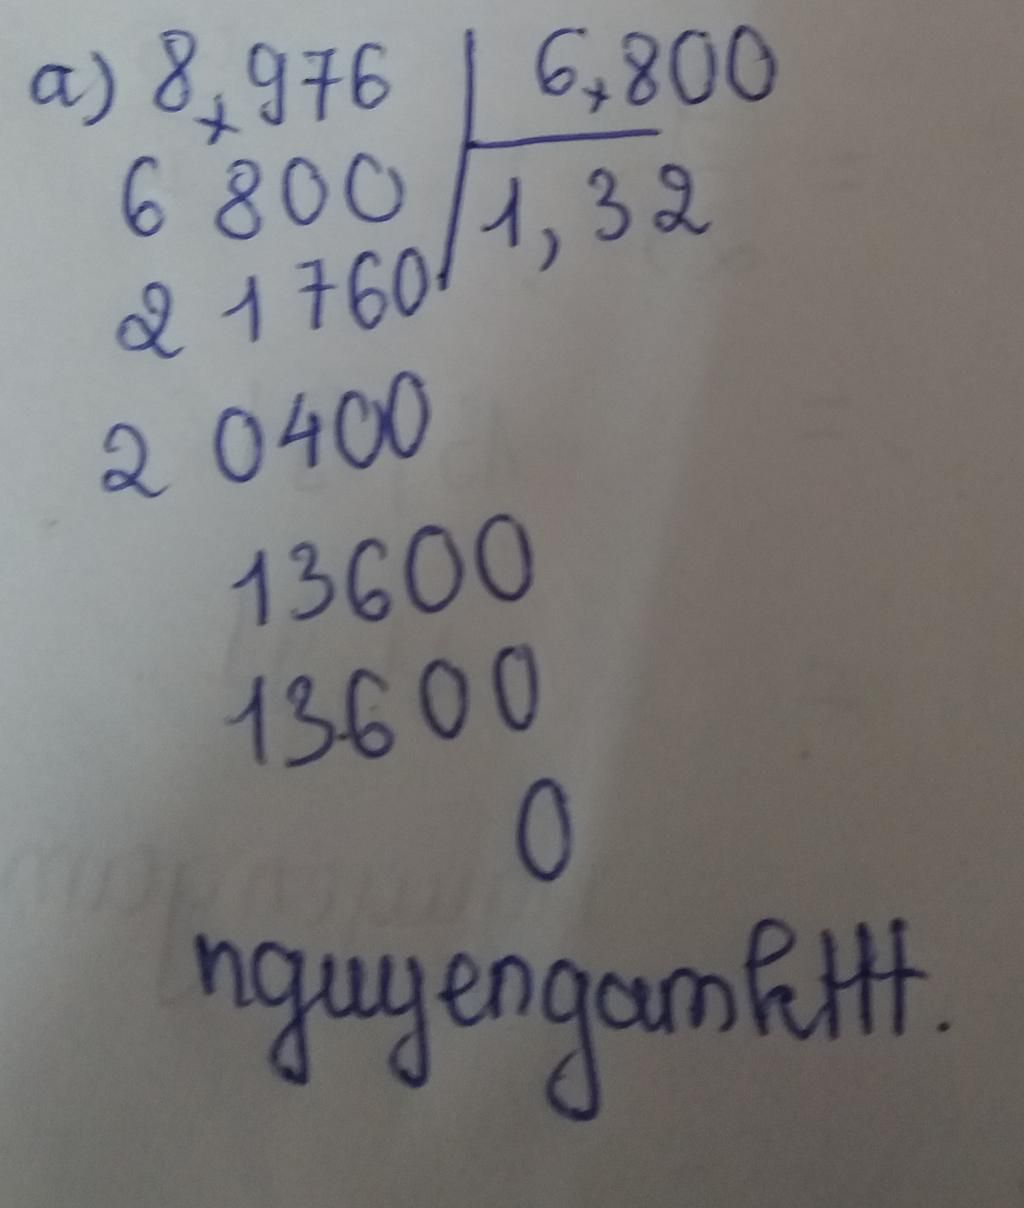 a) 8,976 | 6,800
6 800 | 1,32
2 1760
2 0400
13600
13600
0
nguyengamkHH.